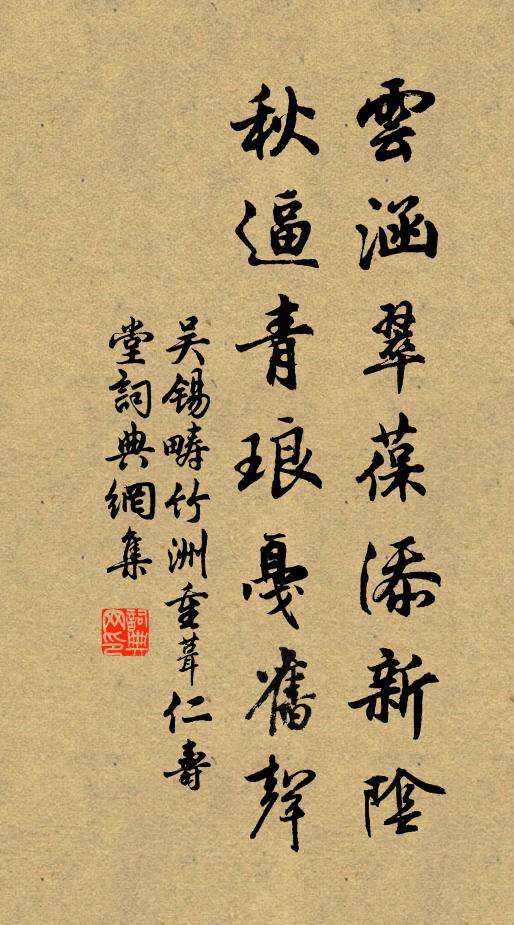 雲涵翠葆添新陰
秋逼青琅戛舊聲
吴錫疇竹洲重葺仁壽
堂詞典網集
詞典
网印